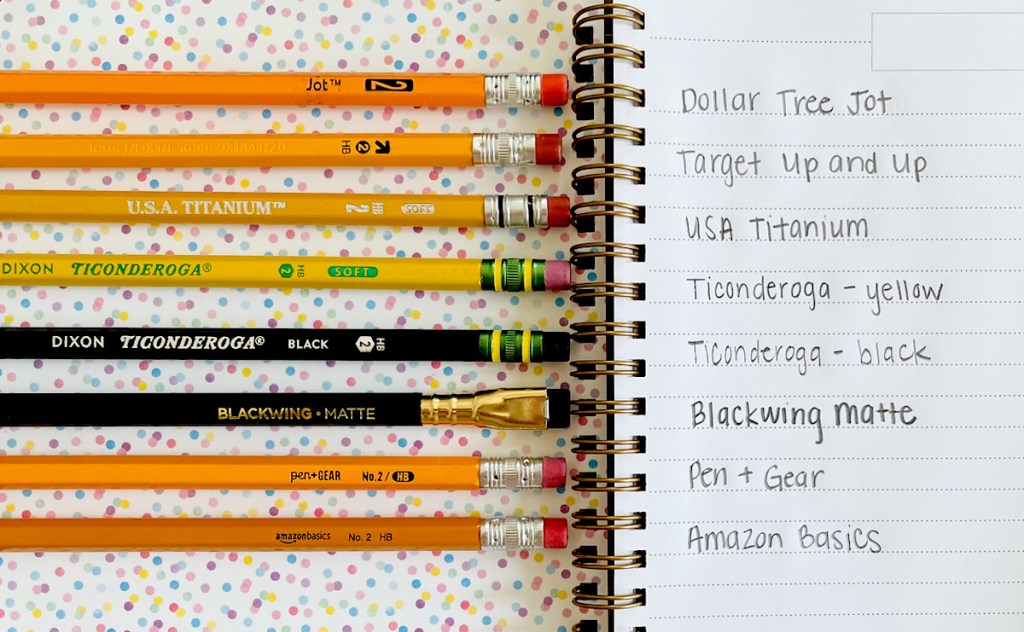 Jot™ 2
Dollar Tree Jot
HB 2
Target Up and Up
U.S.A. TITANIUM™ 2 HB SOFT
USA Titanium
DIXON TICONDEROGA® 2 HB SOFT
Ticonderoga - yellow
DIXON TICONDEROGA® BLACK 2 HB
Ticonderoga - black
BLACKWING • MATTE
Blackwing matte
pen+GEAR No.2/ HB
Pen + Gear
amazonbasics No. 2 HB
Amazon Basics